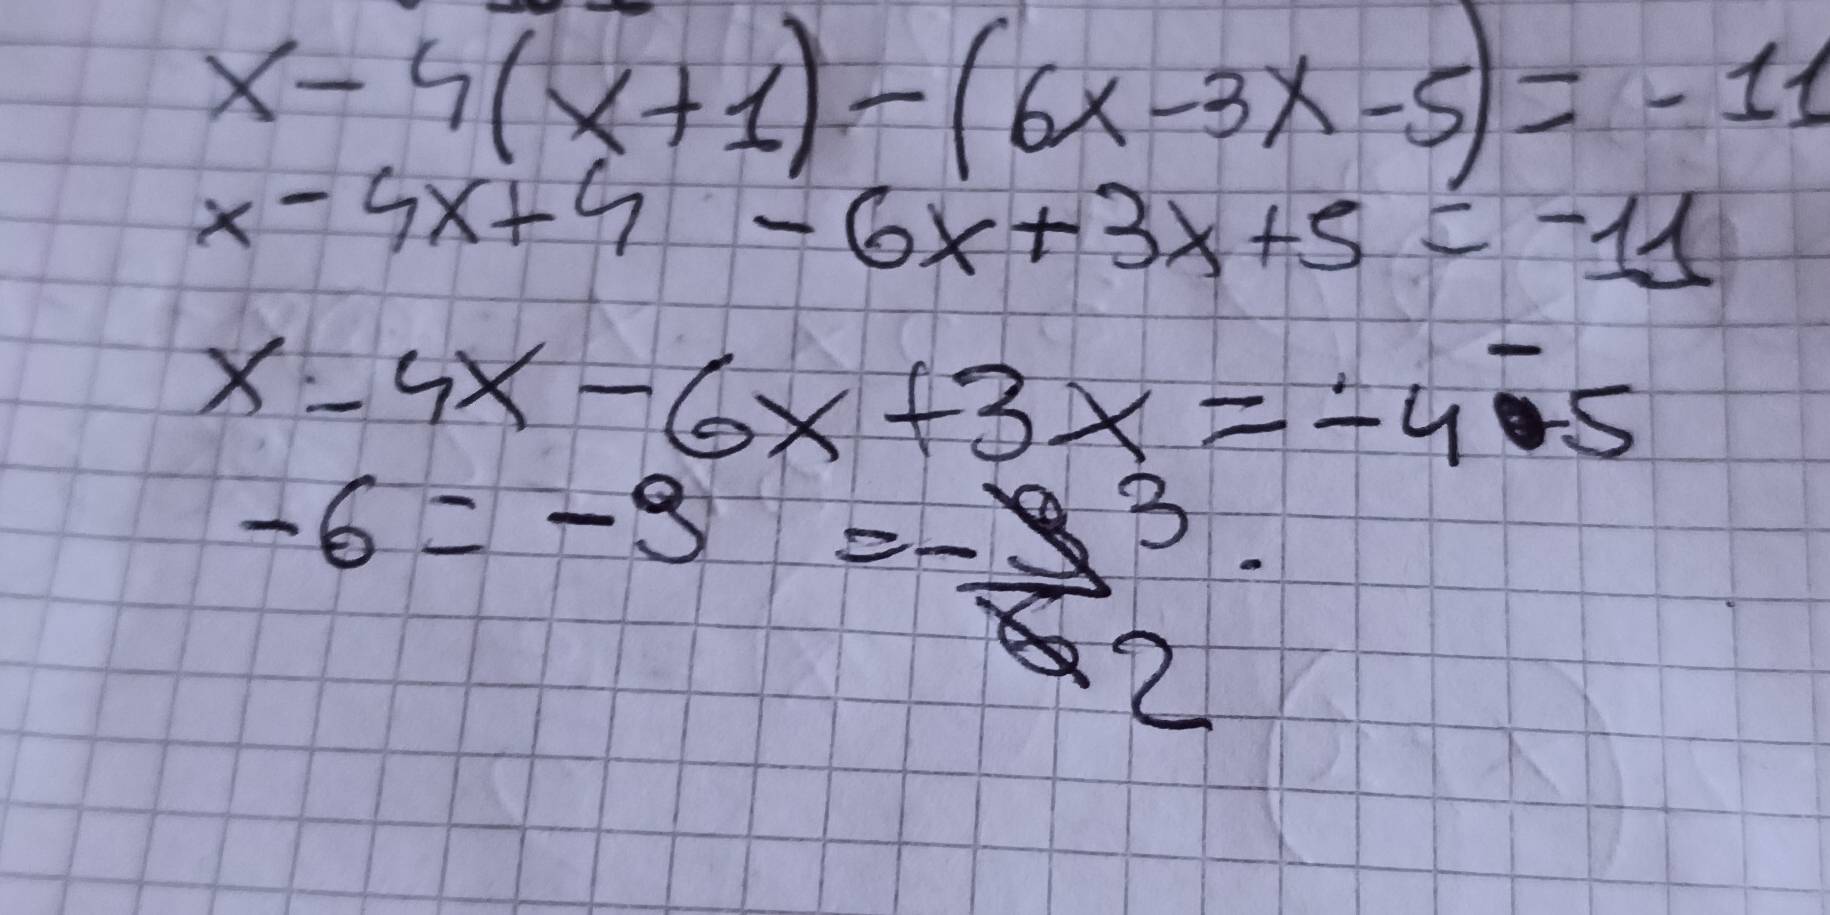 x - 4(x+1) - (6x - 3x - 5) = - 11
x - 4x + 4 - 6x + 3x + 5 = - 11
x - 4x - 6x + 3x = - 4 - 5
- 6 = - 9 = - 9/6 3/2 .